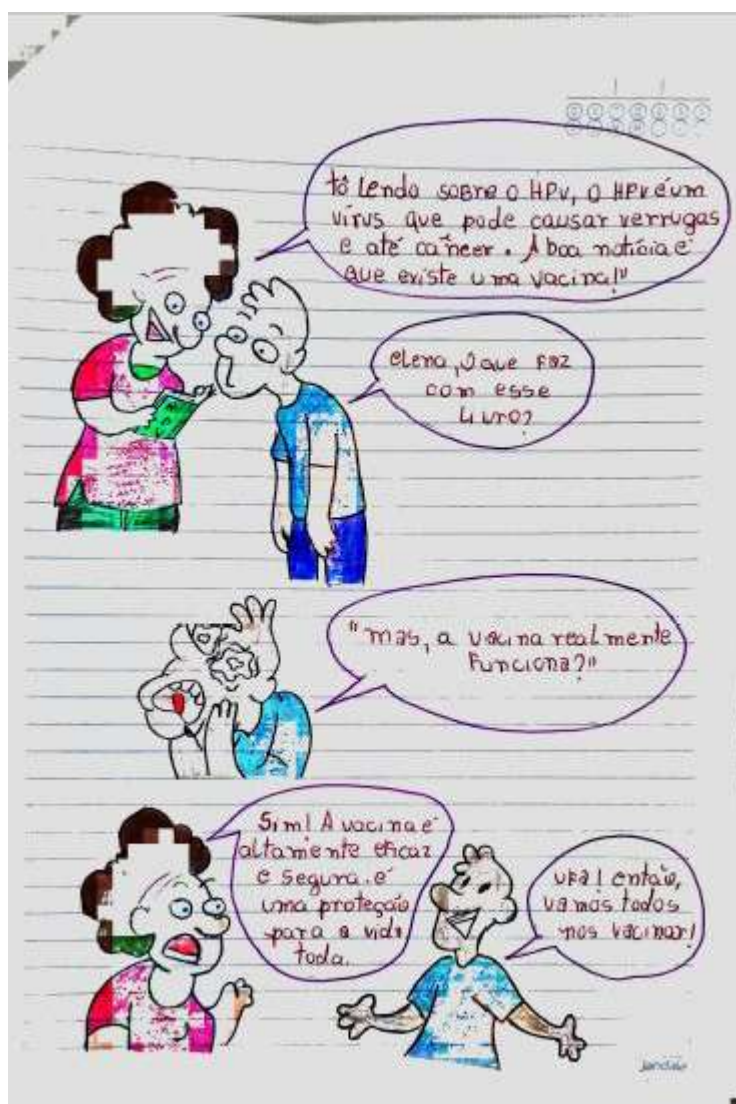 tô Lendo sobre o HPV, o HPV é um
vírus que pode causar verrugas
e até câncer. A boa notícia é
que existe uma vacina!"
elena, o que faz
com esse
Livro?
"mas, a vacina realmente
Funciona?"
Sim! A vacina é
altamente eficaz
e segura. é
uma proteção
para a vida
toda.
ufa! então,
vamos todos
nos vacinar!